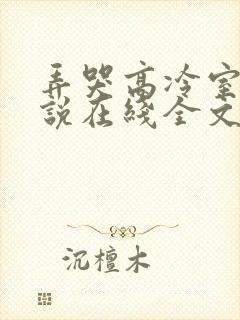 弄哭高冷室
說在綫全文
沉檀木